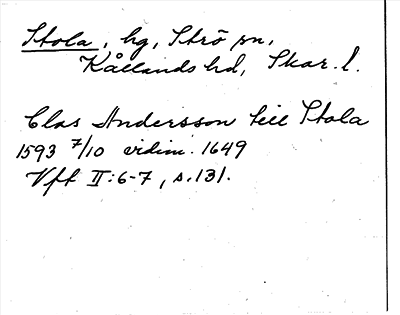 Stola, hg, Strö sn,
Kållands hd, Skar. l.
Clas Andersson till Stola
1593 7/10 vidim. 1649
Vft II:6-7, s.131.